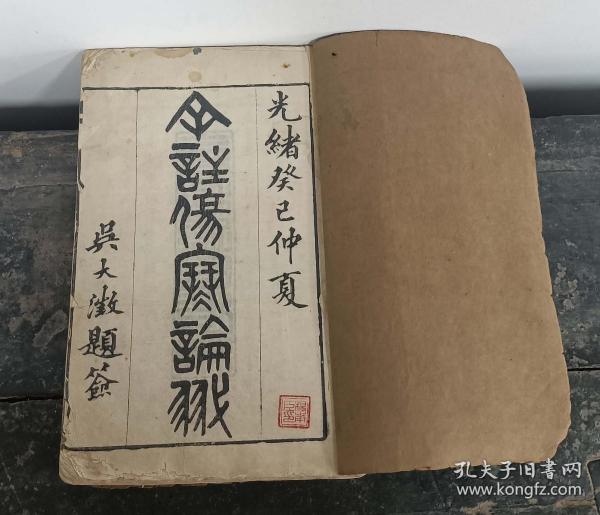 光緒癸巳仲夏
余註傷寒論翼
吳大澂題簽
孔夫子旧书网
www.kongfz.com